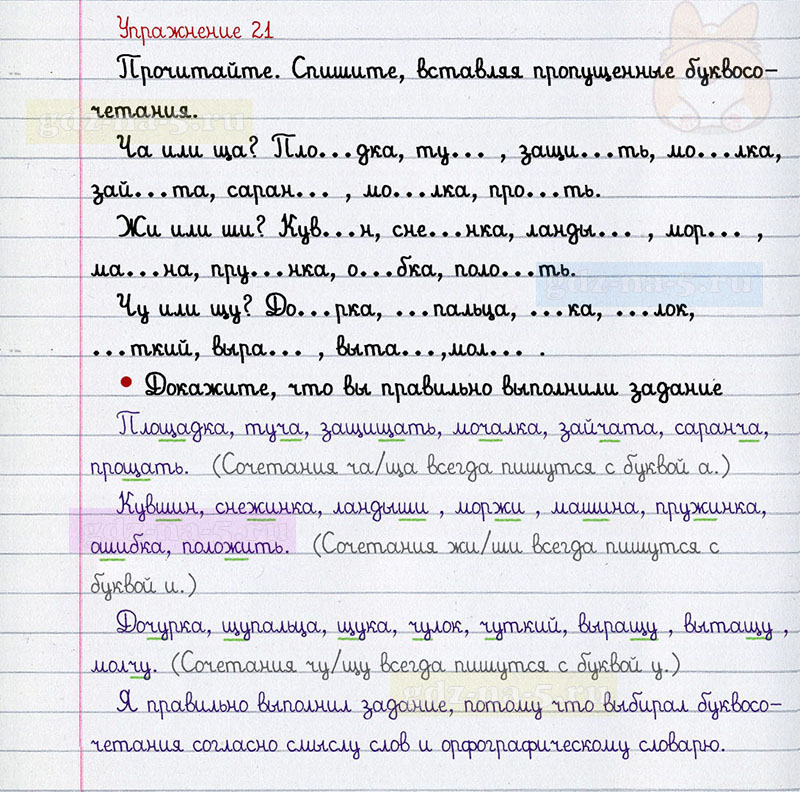 Упражнение 21
Прочитайте. Спишите, вставляя пропущенные буквосо-
четания.
gdz-na-5.ru
Ча или ща? Пло...дка, ту... , защи...ть, мо...лка,
зай...та, саран... , мо...лка, про...ть.
Жи или ши? Кув...н, сне...нка, ланды... , мор... ,
ма...на, пру...нка, о...бка, поло...ть.
gdz-na-5.ru
Чу или щу? До...рка, ...пальца, ...ка, ...лок,
...ткий, выра... , выта...,мол... .
• Докажите, что вы правильно выполнили задание
Площадка, туча, защищать, мочалка, зайчата, саранча,
прощать. (Сочетания ча/ща всегда пишутся с буквой а.)
Кувшин, снежинка, ландыши , моржи , машина, пружинка,
gdz-na-5.ru
ошибка, положить. (Сочетания жи/ши всегда пишутся с
буквой и.)
Дочурка, щупальца, щука, чулок, чуткий, выращу , вытащу ,
молчу. (Сочетания чу/щу всегда пишутся с буквой у.)
gdz-na-5.ru
Я правильно выполнил задание, потому что выбирал буквосо-
четания согласно смыслу слов и орфографическому словарю.